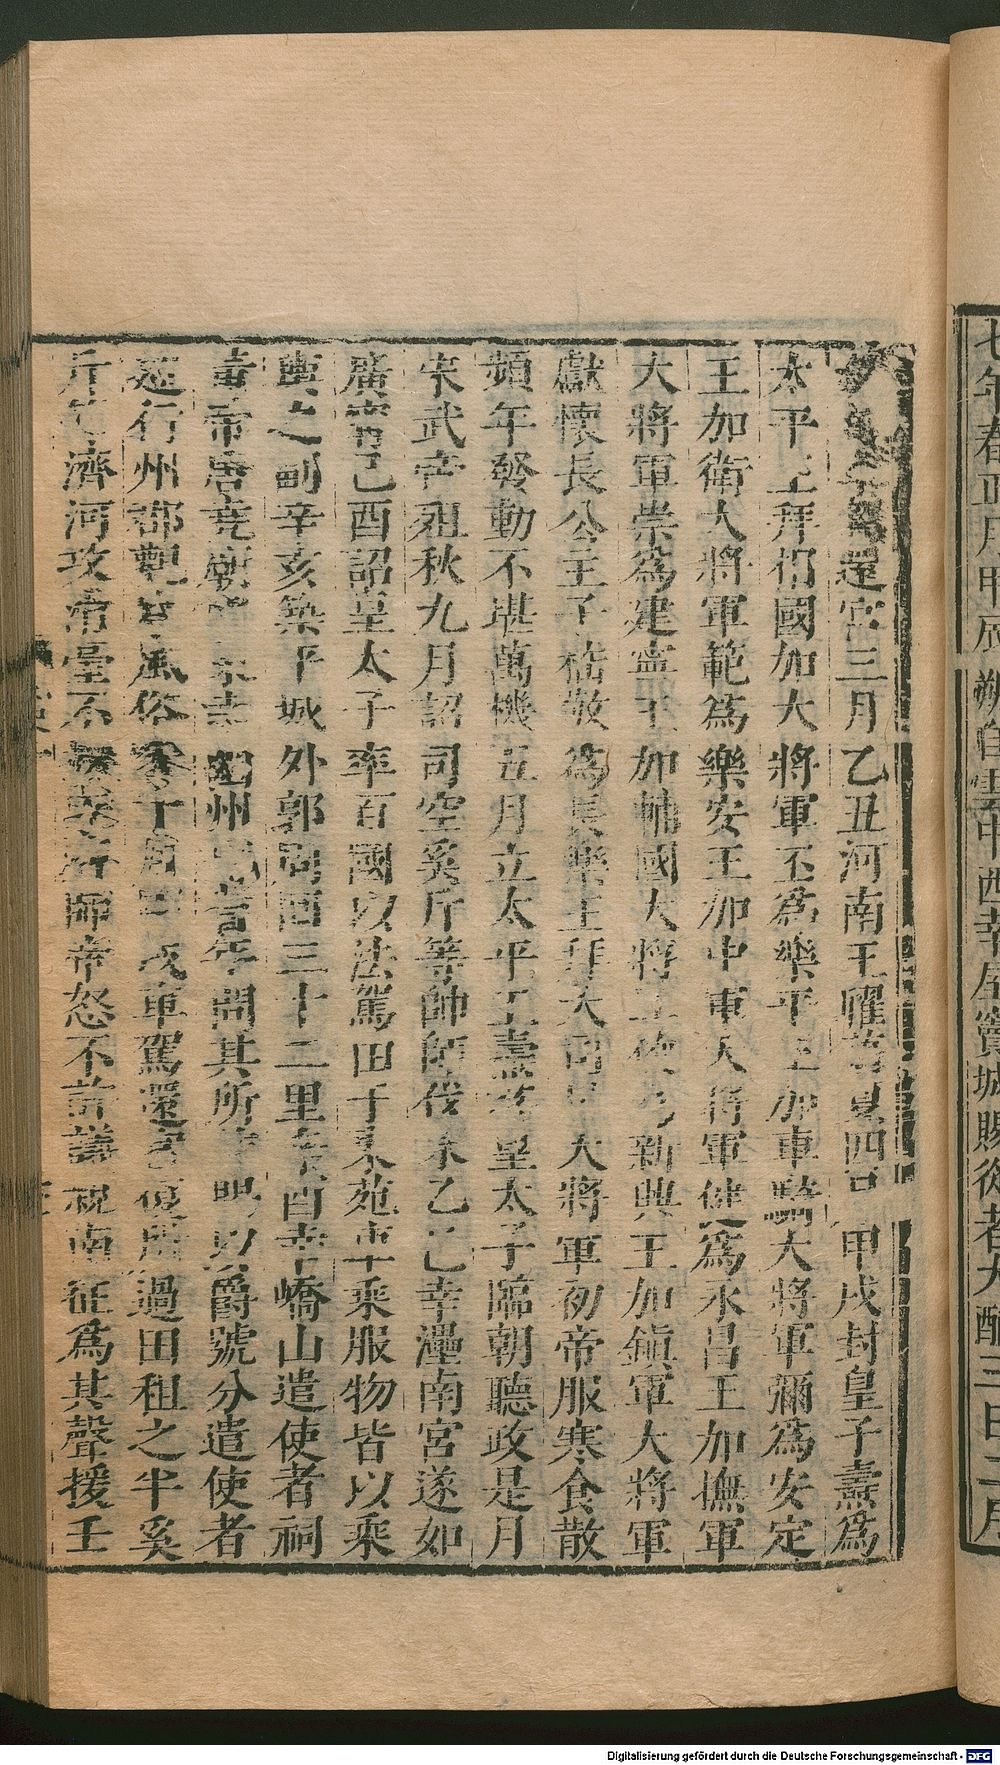 七年春正月甲辰朔自雲中西幸屋竇城賜從者大酺三日二月
還宮三月乙丑河南王曜薨夏四月甲戌封皇子燾爲
太平王拜相國加大將軍丕爲樂平王加車騎大將軍彌爲安定
王加衛大將軍範爲樂安王加中軍大將軍健爲永昌王加撫軍
大將軍崇爲建寧王加輔國大將軍俊爲新興王加鎮軍大將軍
獻懷長公主子嵇敬爲長樂王拜大司馬大將軍初帝服寒食散
頻年發動不堪萬機五月立太平王燾爲皇太子臨朝聽政是月
宋武帝殂秋九月詔司空奚斤等帥師伐宋乙巳幸灅南宮遂如
廣甯己酉詔皇太子率百國以法駕田于東苑車乘服物皆以乘
輿之副辛亥築平城外郭周回三十二里辛酉幸嶠山遣使者祠
帝唐堯廟東幸幽州耆年問其所以爵號分遣使者
巡行州郡觀察風俗冬十月戌車駕還宮復所過田租之半奚
斤等濟河攻滑臺不濟師帝怒不許議親南征爲其聲援壬
Digitalisierung gefördert durch die Deutsche Forschungsgemeinschaft - DFG